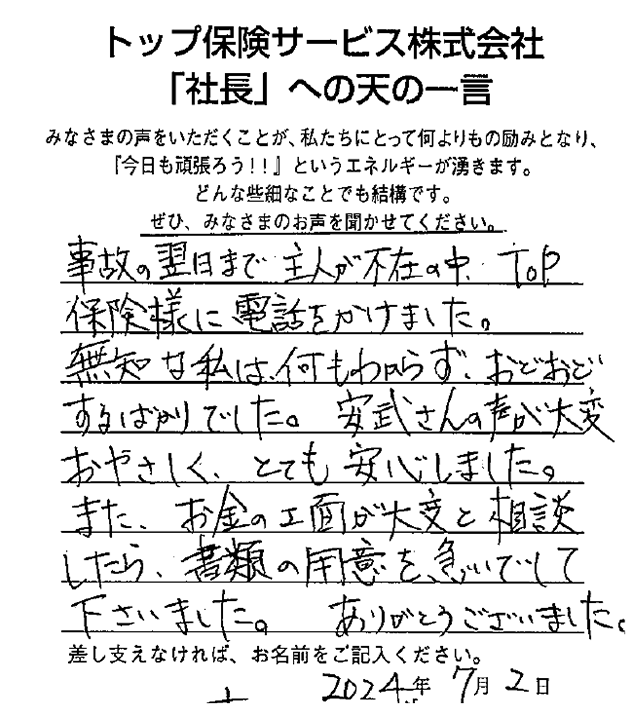 トップ保険サービス株式会社
「社長」への天の一言
みなさまの声をいただくことが、私たちにとって何よりもの励みとなり、
『今日も頑張ろう！！』というエネルギーが湧きます。
どんな些細なことでも結構です。
ぜひ、みなさまのお声を聞かせてください。
事故の翌日まで主人が不在の中、TOP
保険様に電話をかけました。
無知な私は、何もわからず、おどおど
するばかりでした。安武さんの声が大変
おやさしく、とても安心しました。
また、お金の工面が大変と相談
したら、書類の用意を急いでして
下さいました。ありがとうございました。
差し支えなければ、お名前をご記入ください。
2024年7月2日